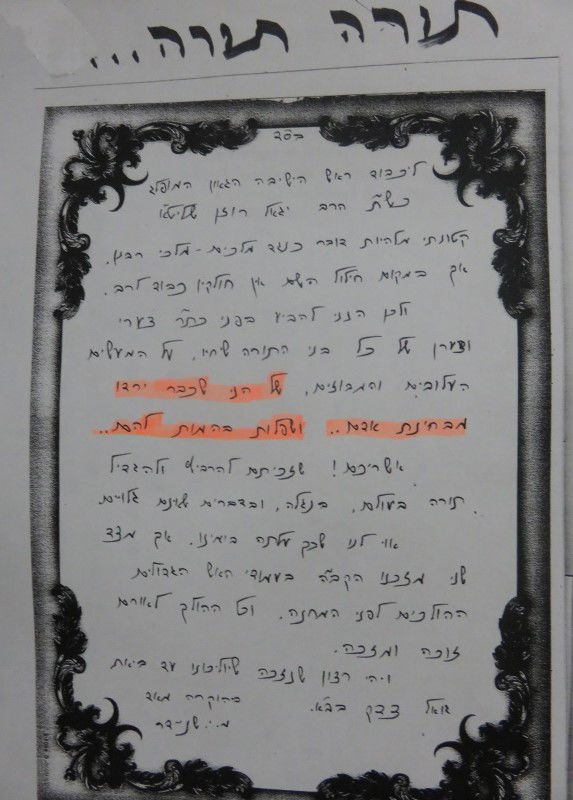 תורה תורה...
בס"ד
ליכבוד ראש הישיבה הגאון המופלג
כש"ת הרב יגאל רוזן שליט"א
קטונתי מלהיות דובר כנגד מלכים - מלכי רבנן,
אך במקום חילול השם אין חולקין כבוד לרב.
ולכן הנני להביע בפני כת"ר צערי
וצערן של כל בני התורה שיחיו, על המעשים
העלובים והמבוזים, של הני שכבר ירדו
מבחינת אדם.. ושפלות בהמות להם..
אשריכם! שזכיתם להרביץ ולהגדיל
תורה בעולם, בנגלה, ובדברים שאינם גלויים
אוי לנו שכך עלתה בימינו. אך מצד
שני מזכנו הקב"ה בעמודי האש הגדולים
ההולכים לפני המחנה. וכל ההולך לאורם
זוכה ומזכה.
ויהי רצון שנזכה שיוליכונו עד ביאת
גואל צדק בב"א.
מיהוקרה מאד
מ.י. שניידר